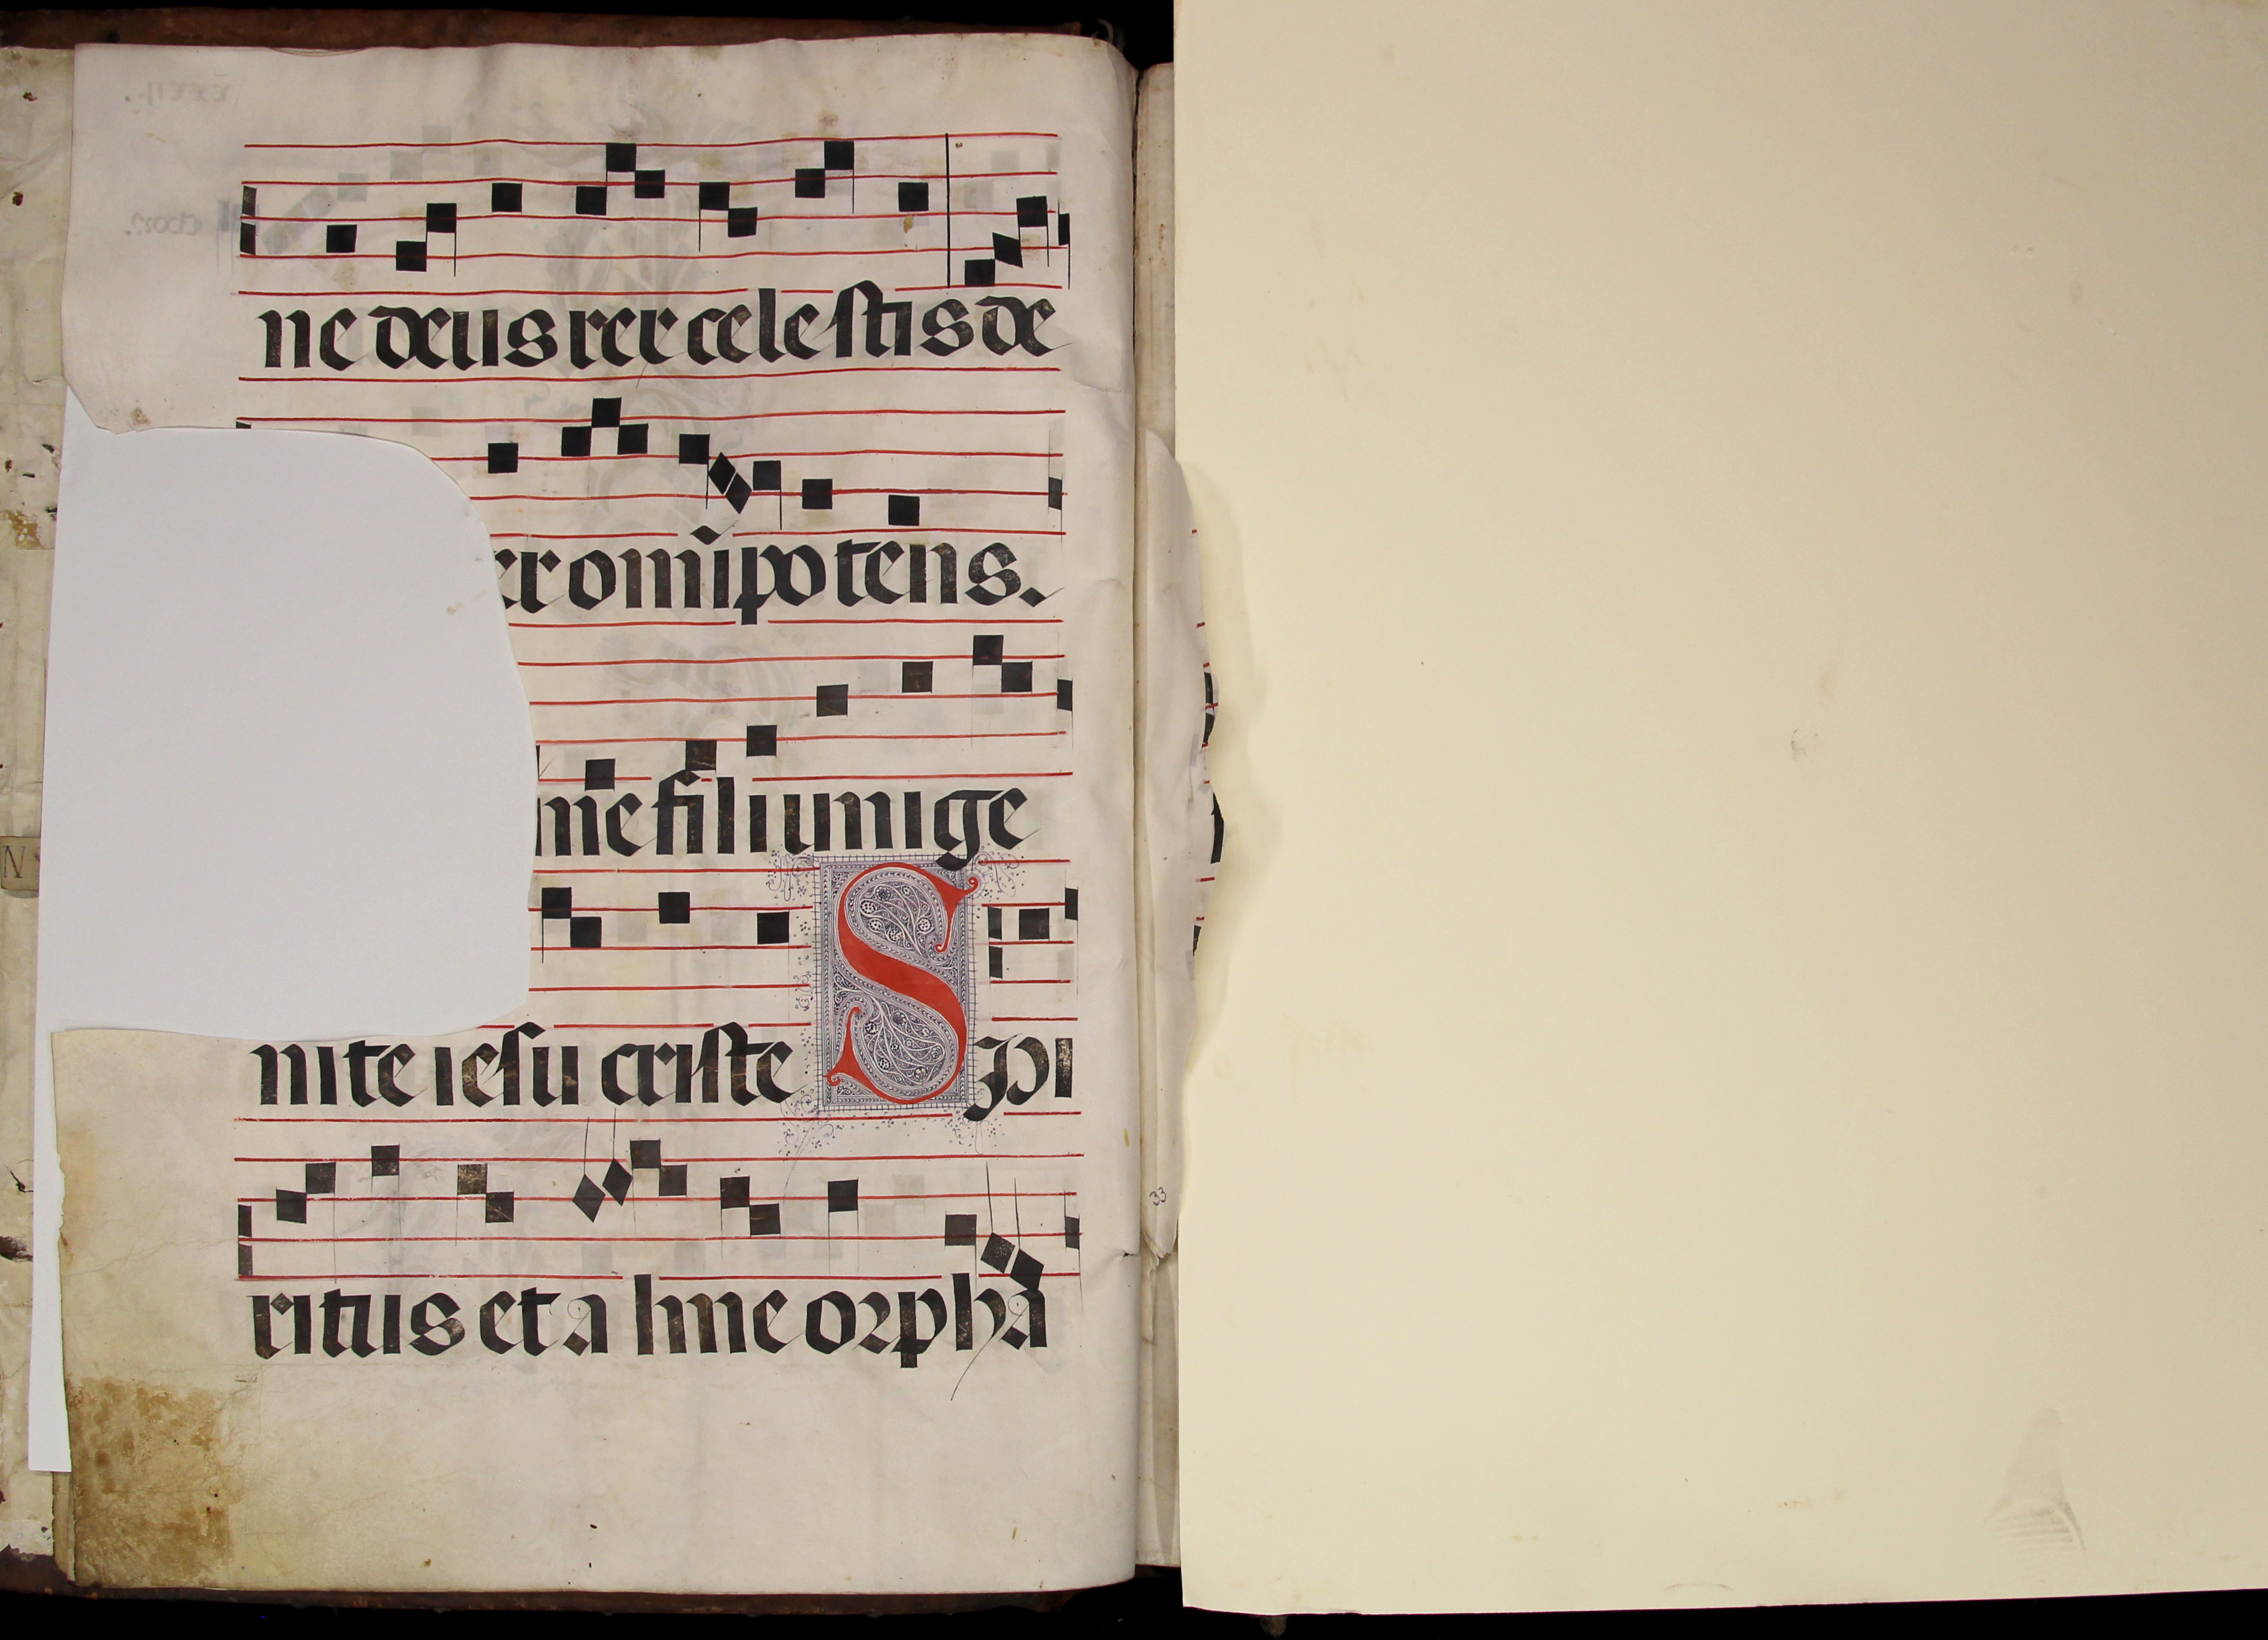 ne deus rex celestis de
er omīpotens.
ne fili unige
nite iesu criste Spi
ritus et alme orpha
33
N